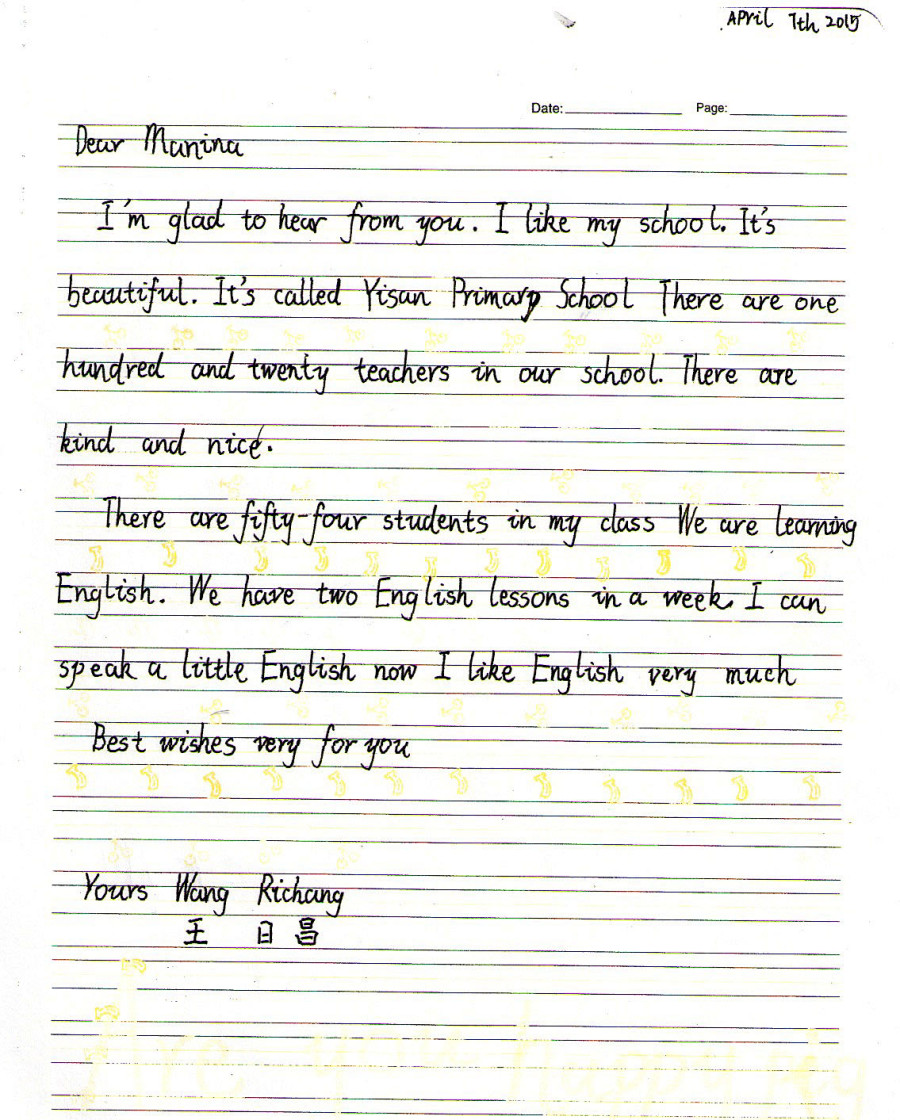 April 7th 2015
Date: Page:
Dear Manina
I'm glad to hear from you. I like my school. It's
beautiful. It's called Yisan Primary School There are one
hundred and twenty teachers in our school. There are
kind and nice.
There are fifty-four students in my class We are learning
English. We have two English lessons in a week. I can
speak a little English now I like English very much
Best wishes very for you
Yours Wang Richang
王 日昌
Are you happy